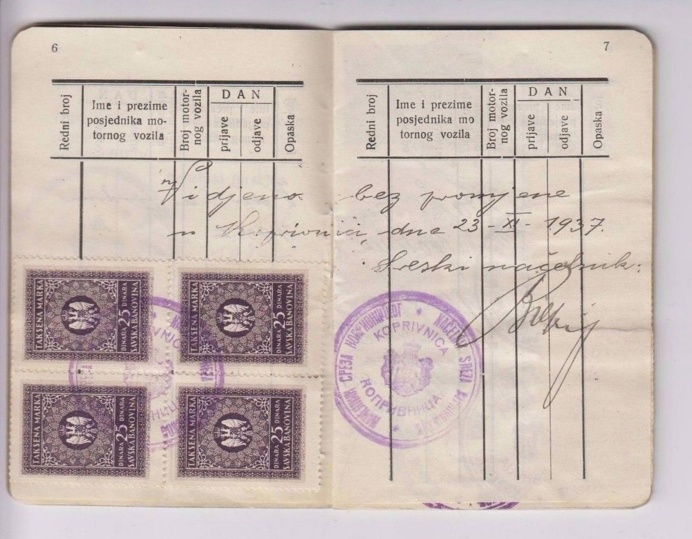 6
Redni broj
Ime i prezime
posjednika mo-
tornog vozila
Broj motor-
nog vozila
DAN
prijave
odjave
Opaska
7
Redni broj
Ime i prezime
posjednika mo
tornog vozila
Broj motor-
nog vozila
DAN
prijave
odjave
Opaska
Vidjeno bez promjene
u Koprivnici, dne 23-XI-1937.
Sreski načelnik:
TAKSENA MARKA
25 DINARA DINARA
SAVSKA BANOVINA
TAKSENA MARKA
25 DINARA DINARA
SAVSKA BANOVINA
TAKSENA MARKA
25 DINARA DINARA
SAVSKA BANOVINA
TAKSENA MARKA
25 DINARA DINARA
SAVSKA BANOVINA
KOPRIVNICA
КОПРИВНИЦА